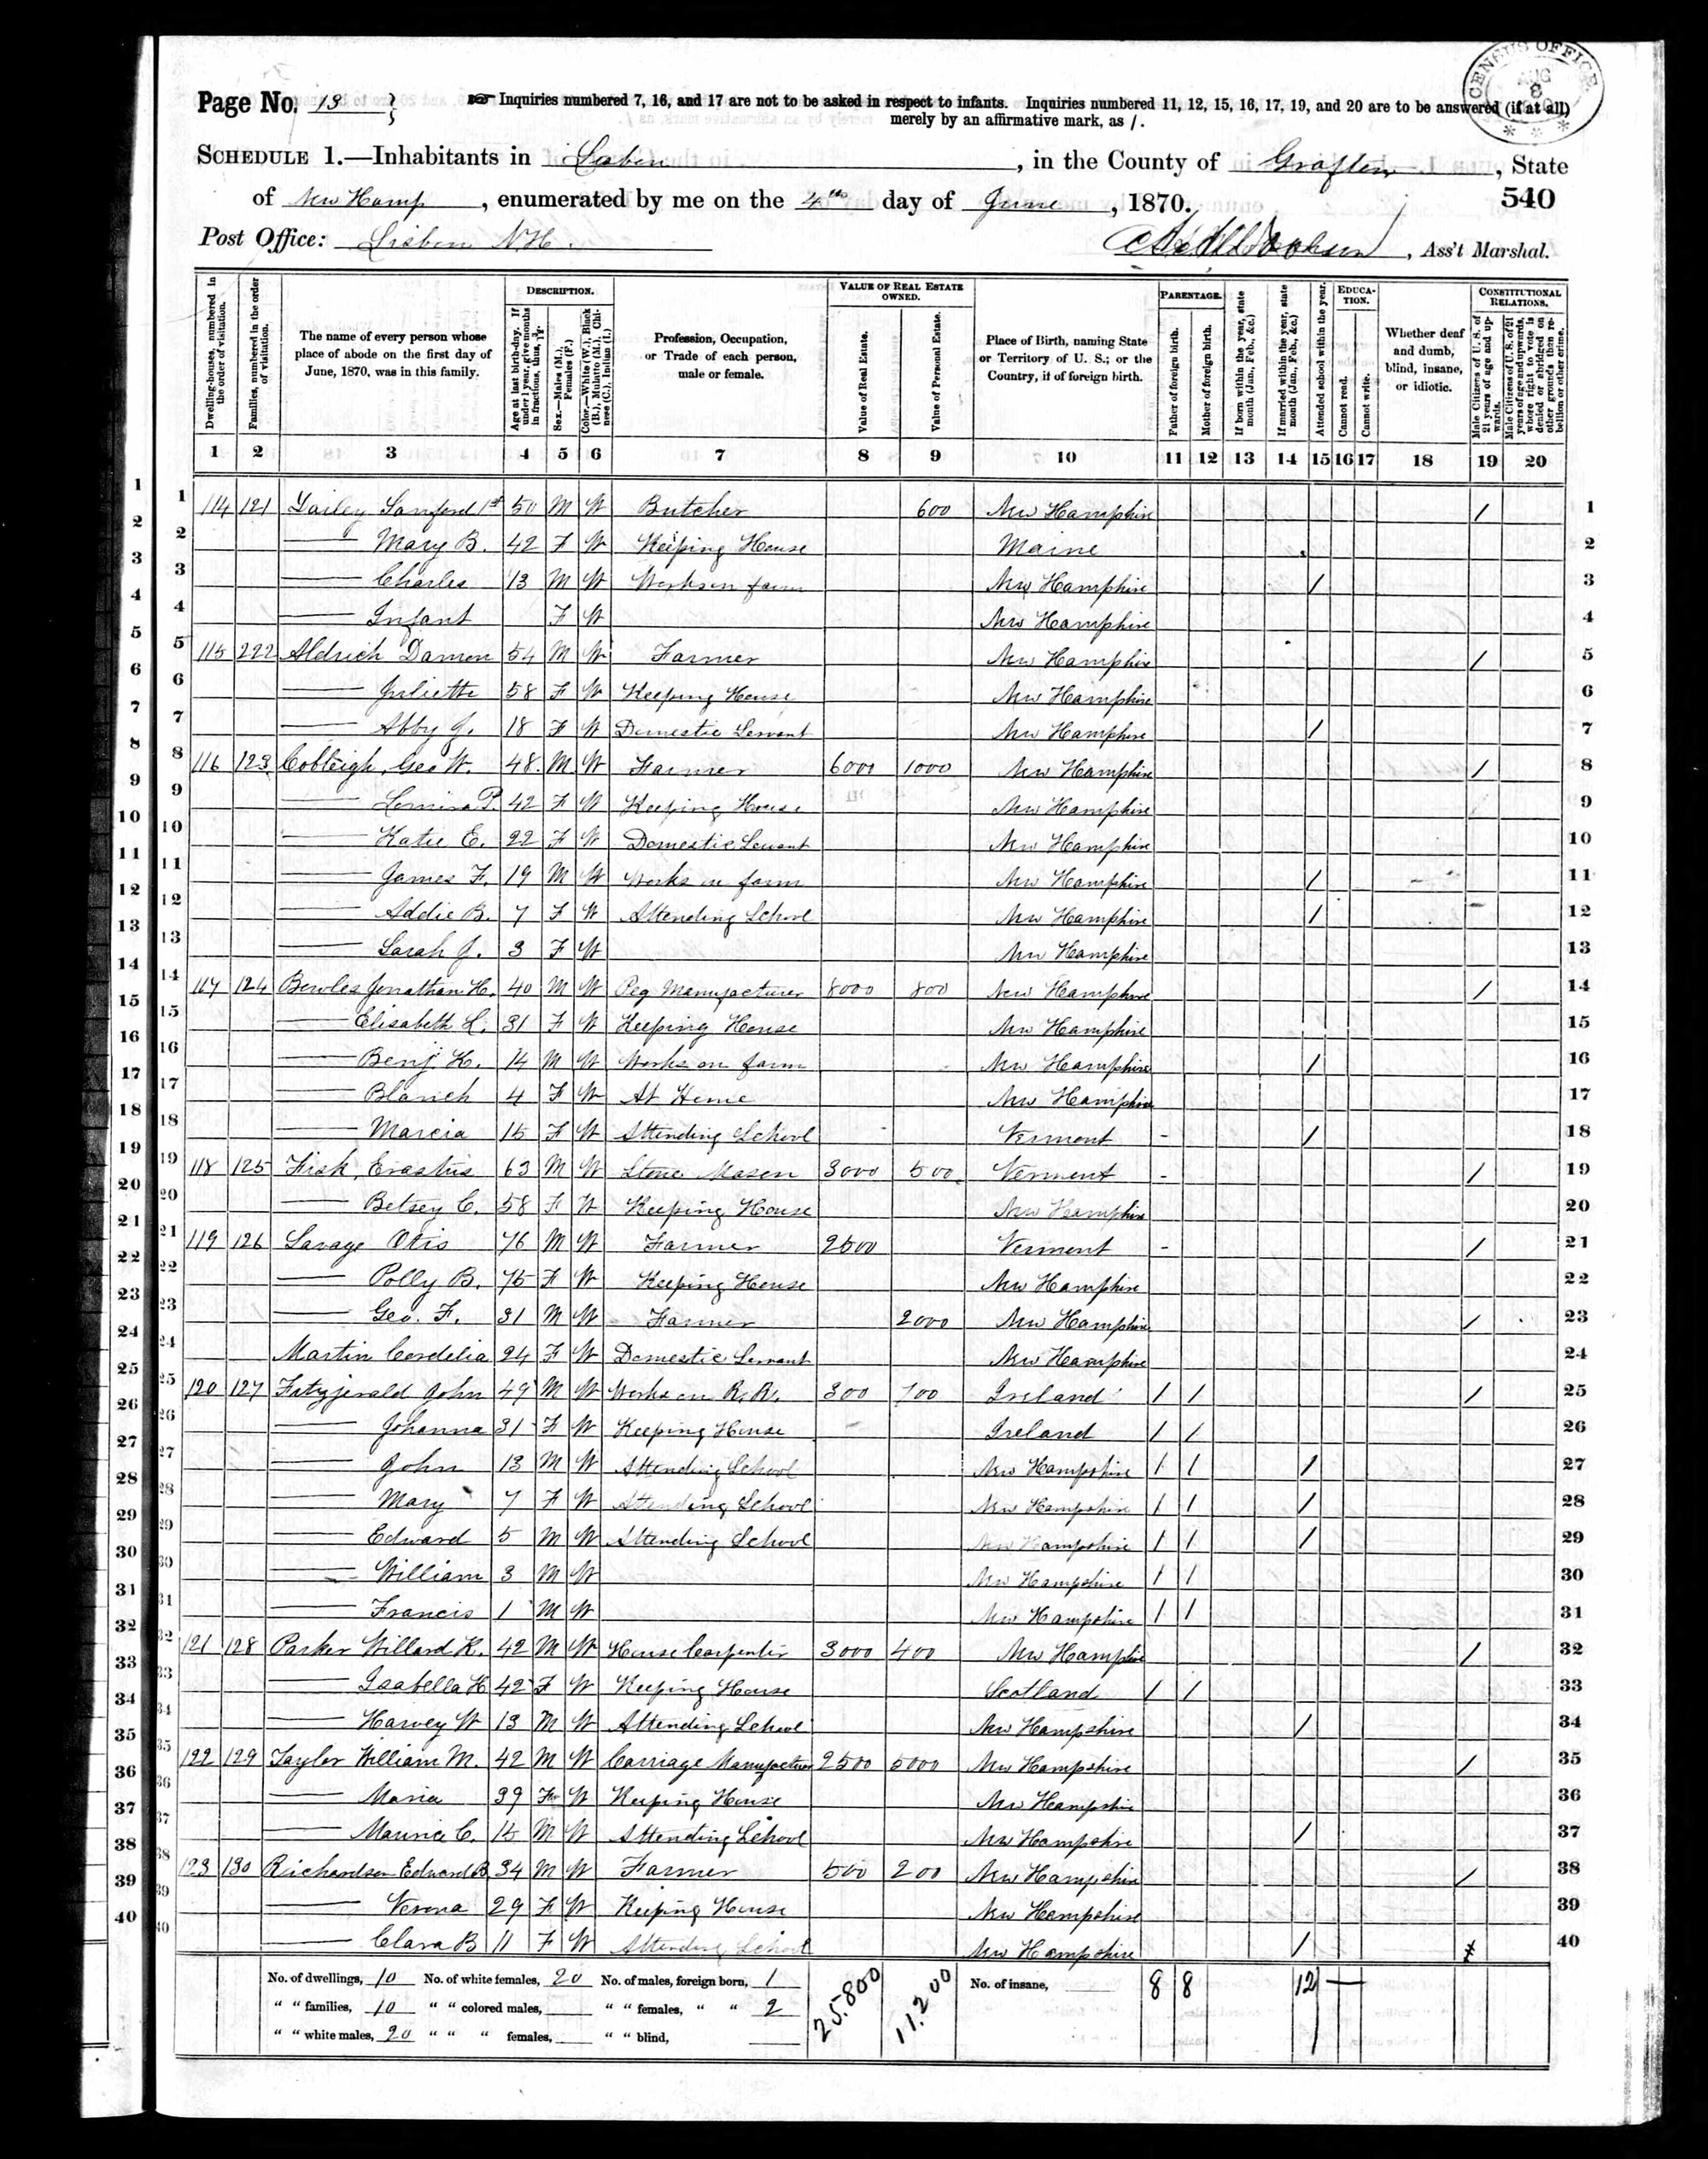 Page No. 13
☞ Inquiries numbered 7, 16, and 17 are not to be asked in respect to infants. Inquiries numbered 11, 12, 15, 16, 17, 19, and 20 are to be answered (if at all)
merely by an affirmative mark, as /.
CENSUS OFFICE AUG 8
SCHEDULE 1.—Inhabitants in Lisbon, in the County of Grafton, State
of New Hamp, enumerated by me on the 4th day of June, 1870.
540
Post Office: Lisbon N.H. , Ass't Marshal.
Dwelling-houses, numbered in the order of visitation.
Families, numbered in the order of visitation.
The name of every person whose place of abode on the first day of June, 1870, was in this family.
DESCRIPTION.
Age at last birth-day. If under 1 year, give months in fractions, thus, 3/12.
Sex.—Males (M.), Females (F.)
Color.—White (W.), Black (B.), Mulatto (M.), Chinese (C.), Indian (I.)
Profession, Occupation, or Trade of each person, male or female.
VALUE OF REAL ESTATE OWNED.
Value of Real Estate.
Value of Personal Estate.
Place of Birth, naming State or Territory of U. S.; or the Country, if of foreign birth.
PARENTAGE.
Father of foreign birth.
Mother of foreign birth.
If born within the year, state month (Jan., Feb., &c.)
If married within the year, state month (Jan., Feb., &c.)
Attended school within the year.
EDUCATION.
Cannot read.
Cannot write.
Whether deaf and dumb, blind, insane, or idiotic.
CONSTITUTIONAL RELATIONS.
Male Citizens of U. S. of 21 years of age and upwards.
Male Citizens of U. S. of 21 years of age and upwards, whose right to vote is denied or abridged on other grounds than rebellion or other crime.
1 2 3 4 5 6 7 8 9 10 11 12 13 14 15 16 17 18 19 20
1 114 121 Sanford 1st 50 M W Butcher 600 New Hampshire / 1
2 — Mary B. 42 F W Keeping House Maine 2
3 — Charles 13 M W Works on farm New Hampshire / 3
4 — Infant F W New Hampshire 4
5 115 222 Aldrich Damon 54 M W Farmer New Hampshire / 5
6 — Juliette 58 F W Keeping House New Hampshire 6
7 — Abby J. 18 F W Domestic Servant New Hampshire / 7
8 116 123 Cobleigh, Geo W. 48 M W Farmer 6000 1000 New Hampshire / 8
9 — P. 42 F W Keeping House New Hampshire 9
10 — Katie E. 22 F W Domestic Servant New Hampshire 10
11 — James F. 19 M W Works on farm New Hampshire / 11
12 — Addie B. 7 F W Attending School New Hampshire / 12
13 — Sarah J. 3 F W New Hampshire 13
14 117 124 Bowles Jonathan H. 40 M W Peg Manufacturer 8000 800 New Hampshire / 14
15 — Elisabeth L. 31 F W Keeping House New Hampshire 15
16 — Benj. K. 14 M W Works on farm New Hampshire / 16
17 — Blanch 4 F W At Home New Hampshire 17
18 — Marcia 15 F W Attending School Vermont - / 18
19 118 125 Fisk, Erastus 63 M W Stone Mason 3000 500 Vermont - / 19
20 — Betsey C. 58 F W Keeping House New Hampshire 20
21 119 126 Savage Otis 76 M W Farmer 2500 Vermont - / 21
22 — Polly B. 75 F W Keeping House New Hampshire 22
23 — Geo. F. 31 M W Farmer 2000 New Hampshire / 23
24 Martin Cordelia 24 F W Domestic Servant New Hampshire 24
25 120 127 Fitzgerald John 49 M W Works on R. R. 300 700 Ireland / / / 25
26 — Johanna 31 F W Keeping House Ireland / / 26
27 — John 13 M W Attending School New Hampshire / / / 27
28 — Mary 7 F W Attending School New Hampshire / / / 28
29 — Edward 5 M W Attending School New Hampshire / / / 29
30 — William 3 M W New Hampshire / / 30
31 — Francis 1 M W New Hampshire / / 31
32 121 128 Parker Willard K. 42 M W House Carpenter 3000 400 New Hampshire / 32
33 — Isabella H 42 F W Keeping House Scotland / / 33
34 — Harvey W 13 M W Attending School New Hampshire / 34
35 122 129 Taylor William M. 42 M W Carriage Manufacturer 2500 5000 New Hampshire / 35
36 — Maria 39 F W Keeping House New Hampshire 36
37 — Maurice C. 15 M W Attending School New Hampshire / 37
38 123 130 Richardson Edward B. 34 M W Farmer 500 200 New Hampshire / 38
39 — Verona 29 F W Keeping House New Hampshire 39
40 — Clara B 11 F W Attending School New Hampshire / 40
No. of dwellings, 10 No. of white females, 20 No. of males, foreign born, 1 25.800 11.200 No. of insane, 8 8 12
" " families, 10 " " colored males, " " females, " " 2
" " white males, 20 " " " females, " " blind,